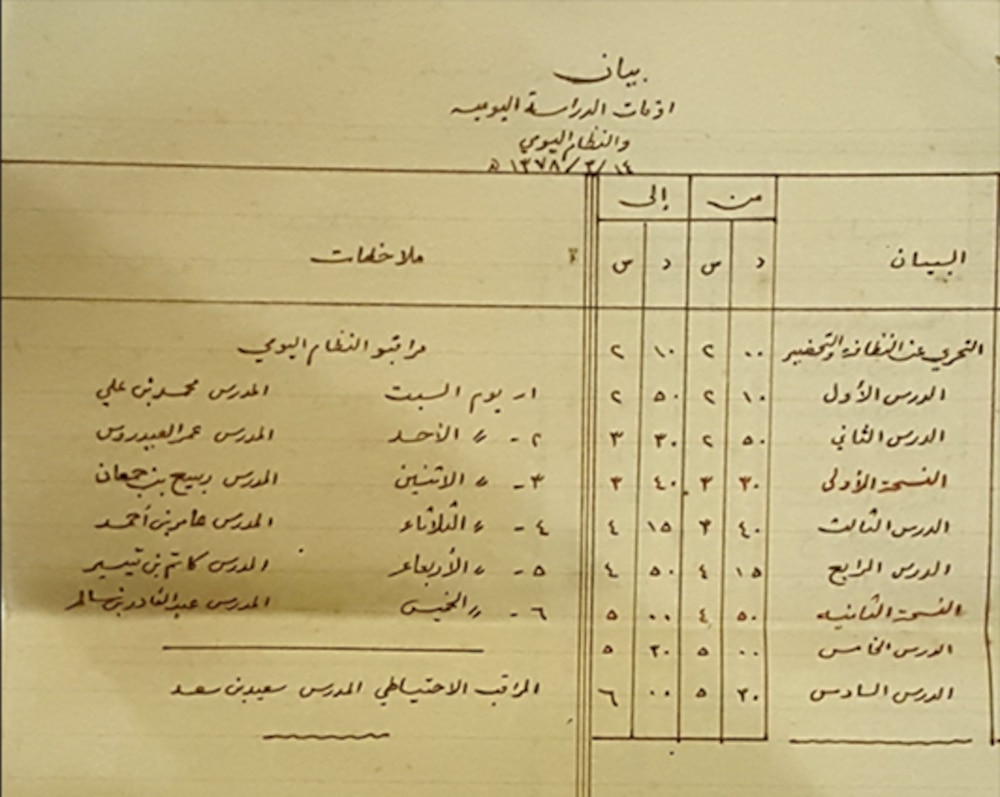 بيان
اوقات الدراسة اليوميه
والنظام اليومي
١٤/٣/١٣٧٨ هـ
البيان من إلى ملاحظات
د س د س
التحري عن النظافة والتحضير ٠٠ ٢ ١٠ ٢ مراقبو النظام اليومي
الدرس الأول ١٠ ٢ ٥٠ ٢ ١ـ يوم السبت المدرس محمد بن علي
الدرس الثاني ٥٠ ٢ ٣٠ ٣ ٢ - " الأحد المدرس عمر العيدروس
الفسحة الأولى ٣٠ ٣ ٤٠ ٣ ٣ - " الاثنين المدرس ربيع بن جمعان
الدرس الثالث ٤٠ ٣ ١٥ ٤ ٤ - " الثلاثاء المدرس عامر بن أحمد
الدرس الرابع ١٥ ٤ ٥٠ ٤ ٥ - " الأربعاء المدرس بن تيسير
الفسحة الثانيه ٥٠ ٤ ٠٠ ٥ ٦ - " الخميس المدرس عبدالقادر بن سالم
الدرس الخامس ٠٠ ٥ ٣٠ ٥
الدرس السادس ٣٠ ٥ ٠٠ ٦ المراقب الاحتياطي المدرس سعيد بن سعد